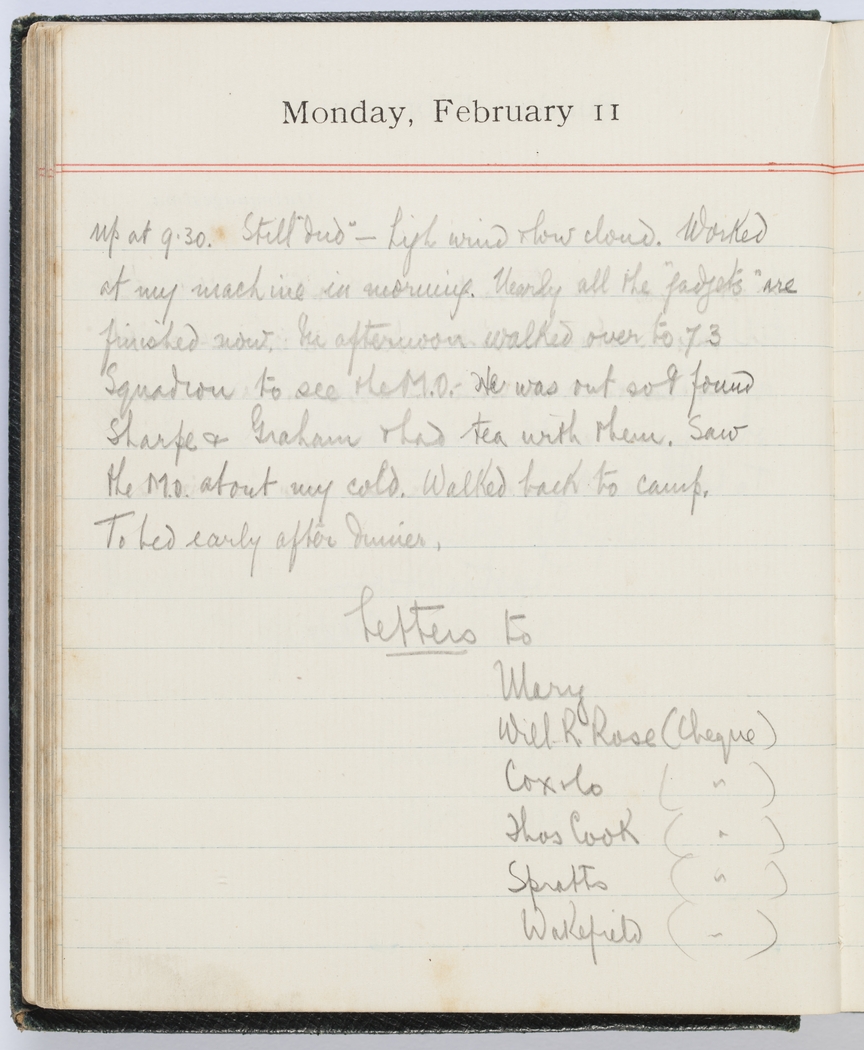 Monday, February 11
up at 9.30. Still "dud" — high wind & low cloud. Worked
at my machine in morning. Nearly all the "gadgets" are
finished now. In afternoon walked over to 73
Squadron to see the M.O. - He was out so I found
Sharpe & Graham & had tea with them. Saw
the M.O. about my cold. Walked back to camp.
To bed early after dinner.
Letters to
Mary
Will. R. Rose (Cheque)
Cox & Co ( " )
Thos Cook ( " )
Spratts ( " )
Wakefield ( " )